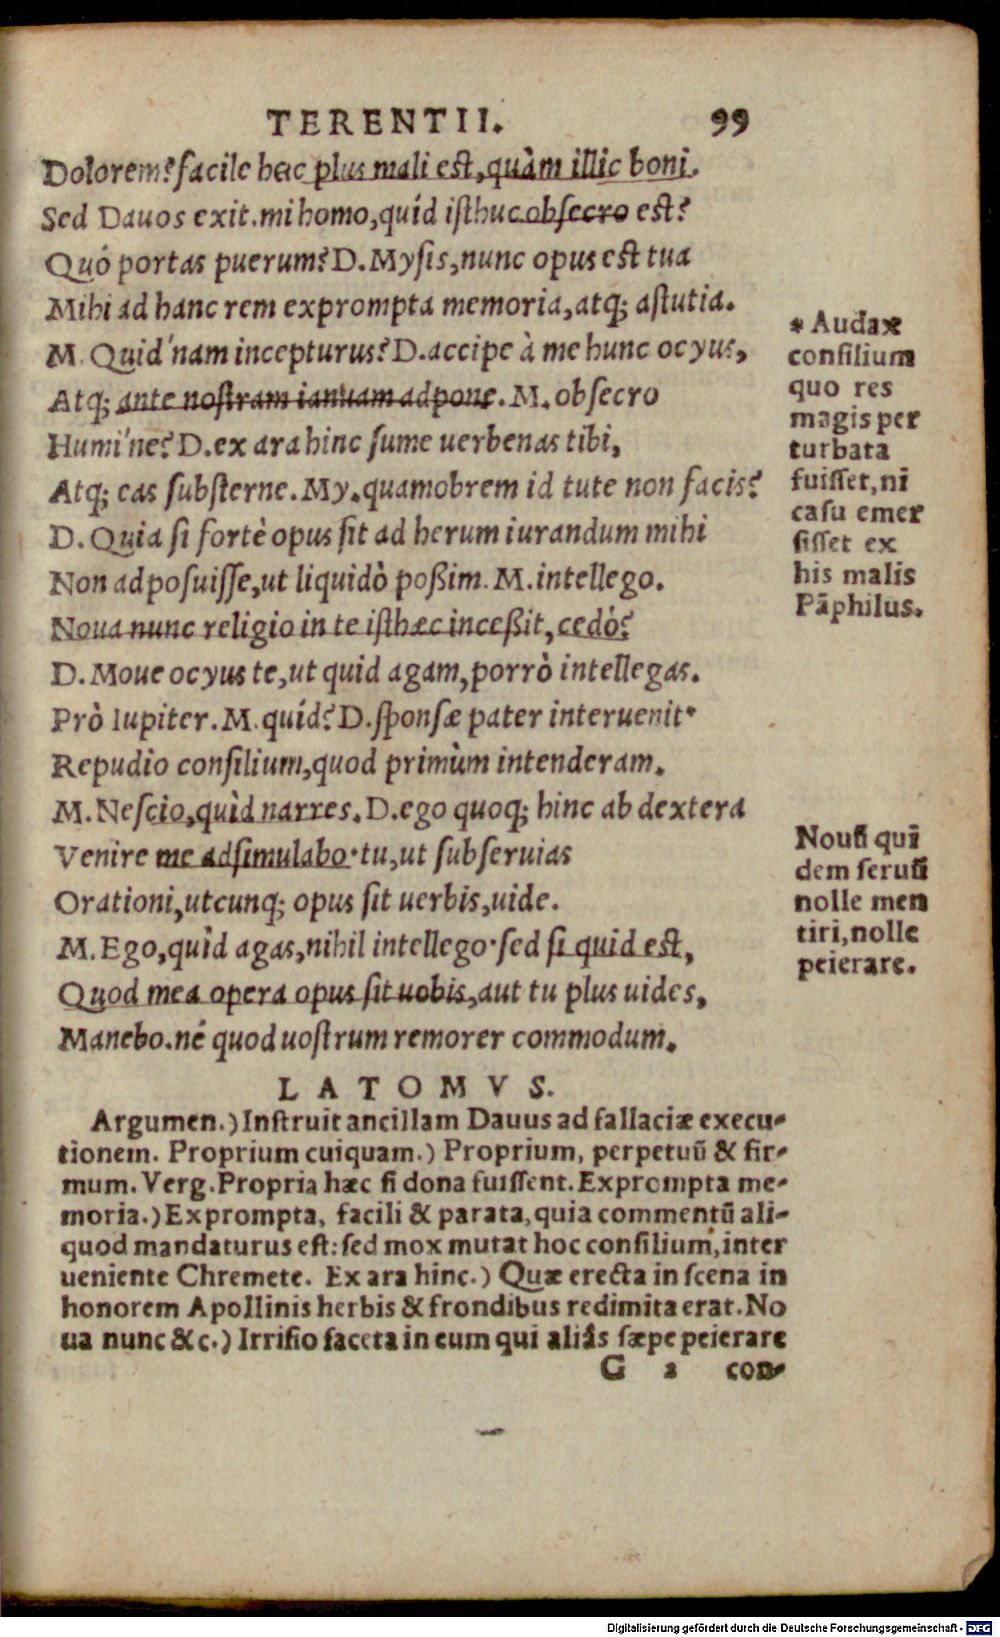 TERENTII. 99
Dolorem? facile hæc plus mali est, quàm illic boni.
Sed Dauos exit. mi homo, quíd isthuc obsecro est?
Quó portas puerum? D. Mysis, nunc opus est tua
Mihi ad hanc rem exprompta memoria, atq; astutia.
M. Quid'nam incepturus? D. accipe à me hunc ocyus,
Atq; ante nostram ianuam adpone. M. obsecro
Humi'ne? D. ex ara hinc sume uerbenas tibi,
Atq; eas substerne. My. quamobrem id tute non facis?
D. Quia si fortè opus sit ad herum iurandum mihi
Non adposuisse, ut liquidò poßim. M. intellego.
Noua nunc religio in te isthæc inceßit, cedò?
D. Moue ocyus te, ut quid agam, porrò intellegas.
Prò Iupiter. M. quíd? D. sponsæ pater interuenit·
Repudio consilium, quod primùm intenderam.
M. Nescio, quìd narres. D. ego quoq; hinc ab dextera
Venire me adsimulabo· tu, ut subseruias
Orationi, utcunq; opus sit uerbis, uide.
M. Ego, quìd agas, nihil intellego· sed si quid est,
Quod mea opera opus sit uobis, aut tu plus uides,
Manebo. né quod uostrum remorer commodum.
* Audax
consilium
quo res
magis per
turbata
fuisset, nĩ
casu emer
sisset ex
his malis
Pãphilus.
Nouũ quĩ
dem seruũ
nolle men
tiri, nolle
peierare.
LATOMVS.
Argumen.) Instruit ancillam Dauus ad fallaciæ execu-
tionem. Proprium cuiquam.) Proprium, perpetuũ & fir-
mum. Verg. Propria hæc si dona fuissent. Exprompta me-
moria.) Exprompta, facili & parata, quia commentũ ali-
quod mandaturus est: sed mox mutat hoc consilium, inter
ueniente Chremete. Ex ara hinc.) Quæ erecta in scena in
honorem Apollinis herbis & frondibus redimita erat. No
ua nunc &c.) Irrisio faceta in eum qui aliâs sæpe peierare
G 2 con-
Digitalisierung gefördert durch die Deutsche Forschungsgemeinschaft - DFG